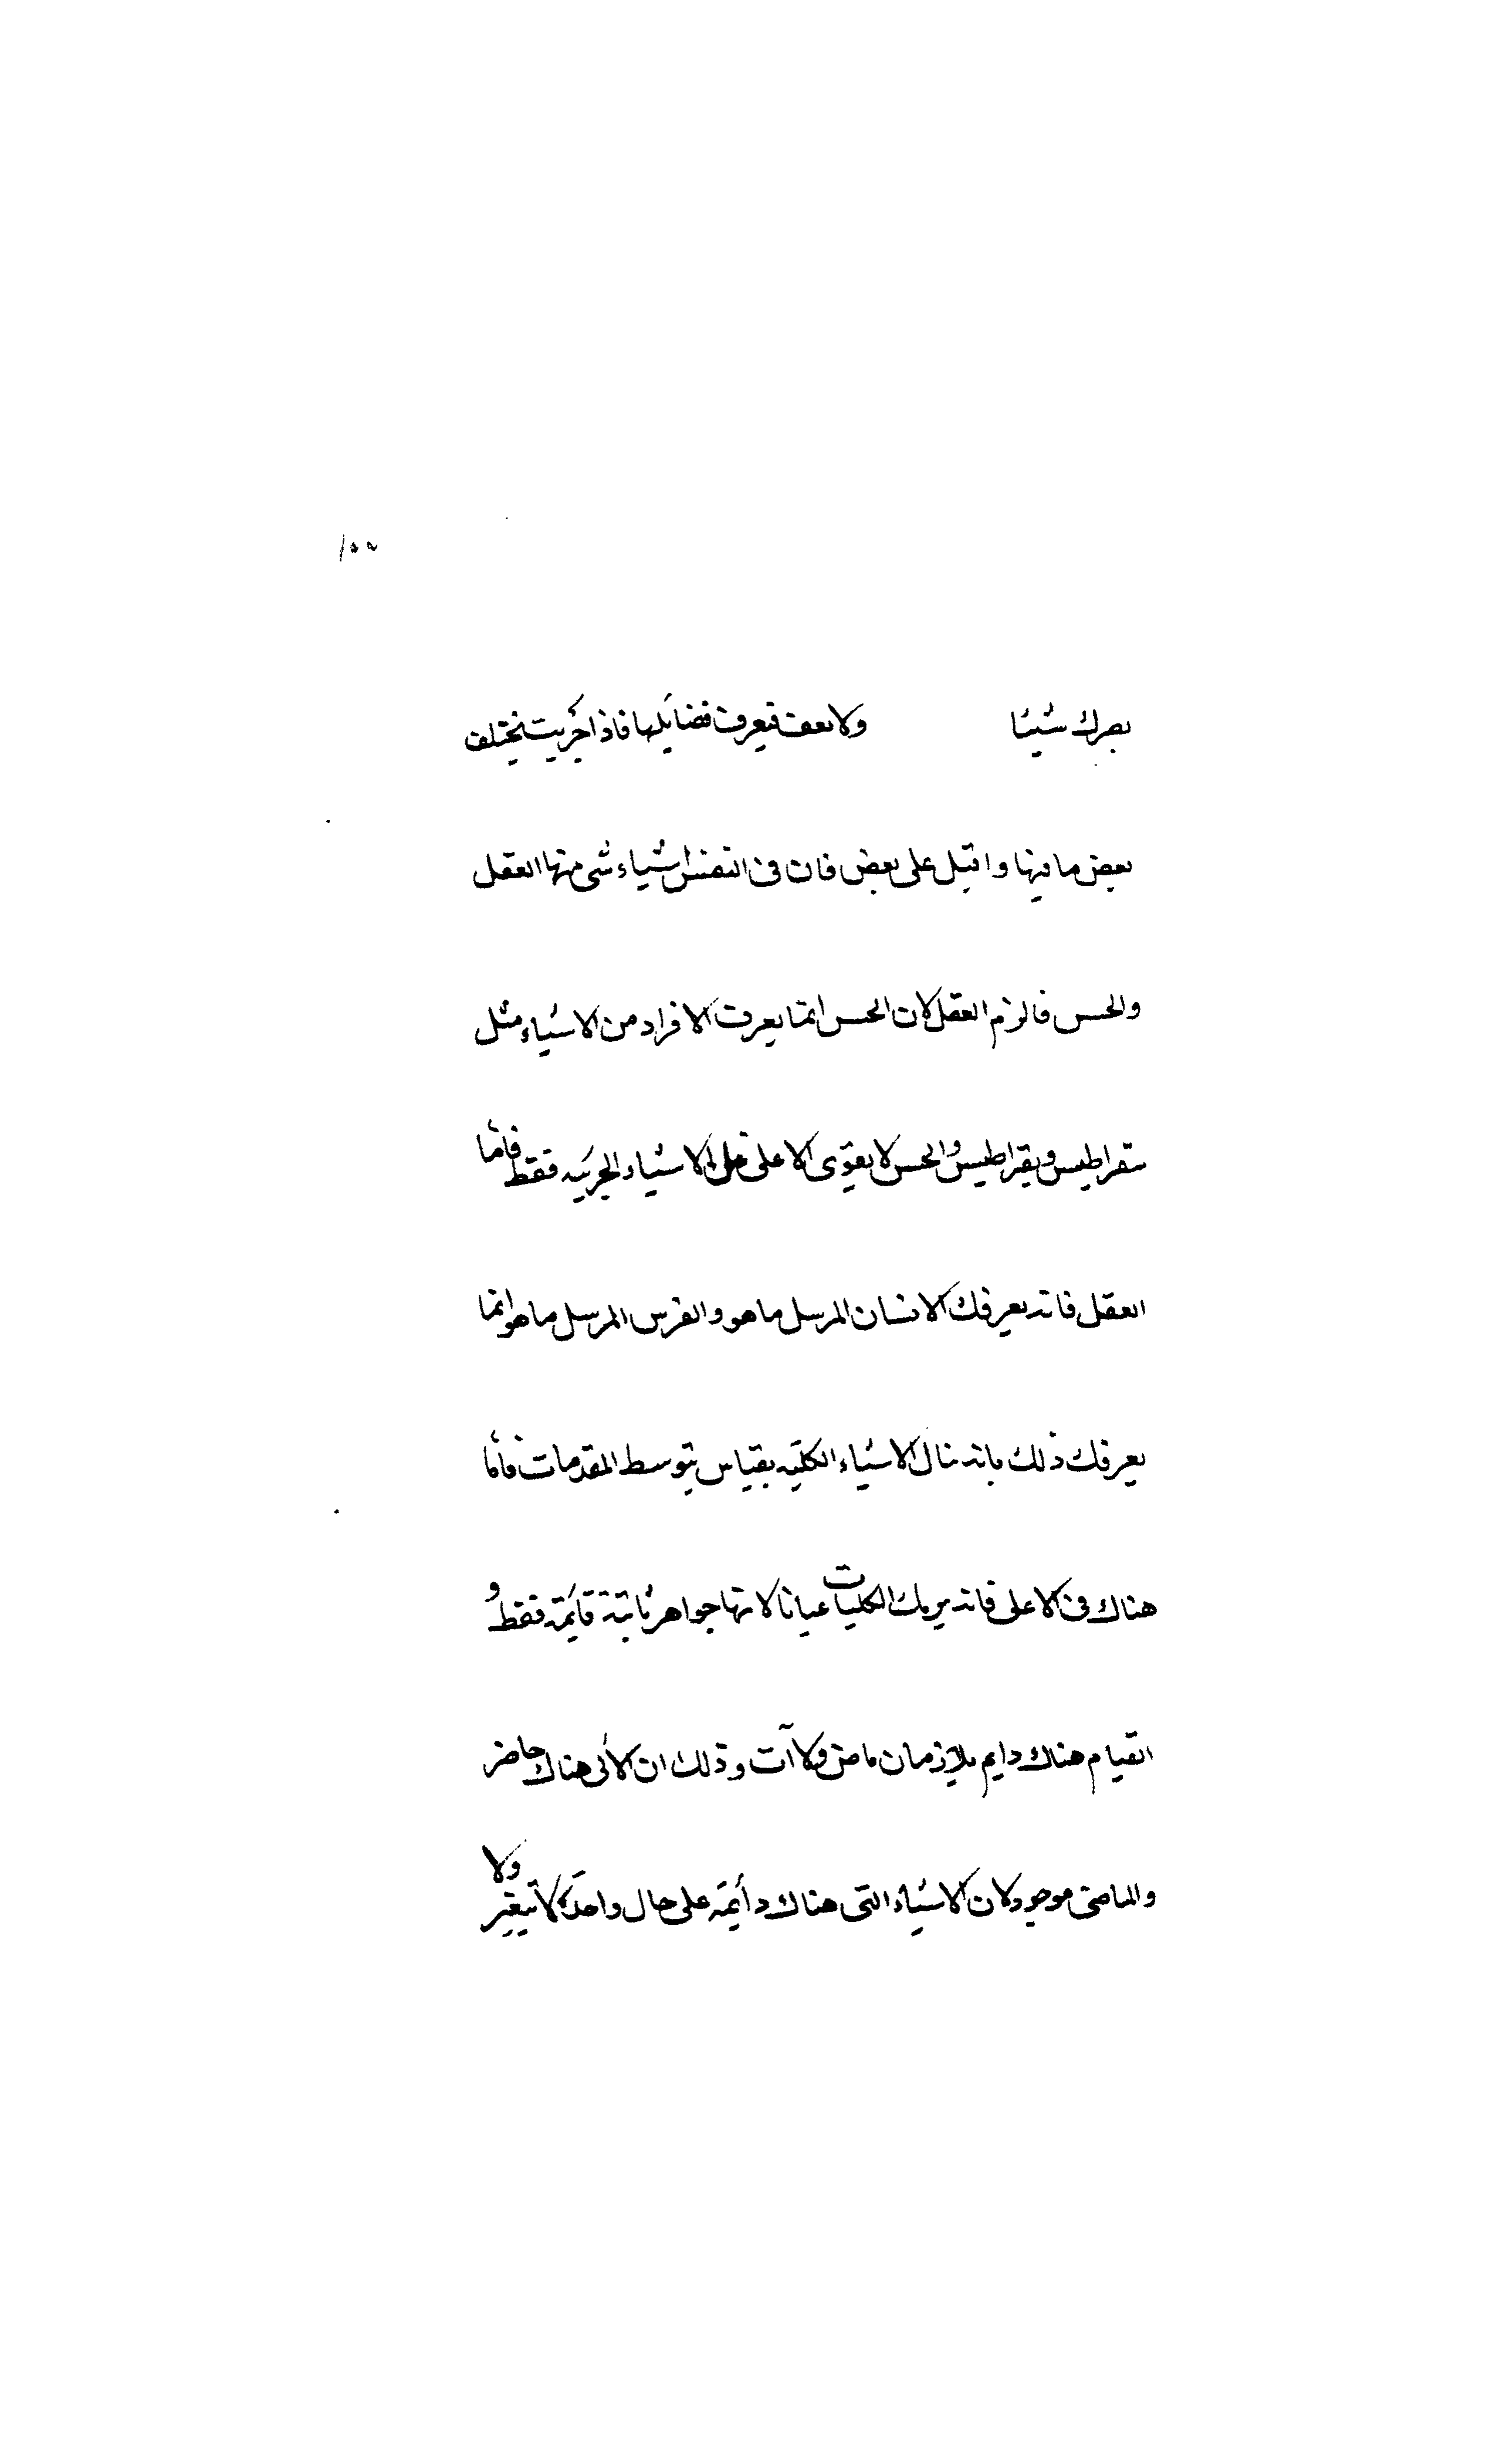 ١٥٥
بصرك شيئا ولا تعف فتعرف فضايلها فاذا جربت فيختلف
بعض ما فيها واقبل على بعض فان في النفس اشياء شى منها العقل
والحس فالزم العقل لان الحس انما يعرف الافراد من الاشياء مثل
سقراطيس وبقراطيس والحس لا يقوى الا على الاشياء الجزئيه فقط فاما
العقل فانه يعرفك الانسان المرسل ما هو والفرس المرسل ما هو انما
يعرفك ذلك بانه ينال الاشياء الكليه بقياس بتوسط المقدمات فاما
هناك في الاعلى فانه يريك الكليات عيانا لانها جواهر ثابتة قايمة فقط و
القيام هناك دايم بلا زمان ماض ولا آت وذلك ان الآتي هناك حاضر
والماضي موجود لان الاشياء التي هناك دائمة على حال واحدة لا تتغير ولا